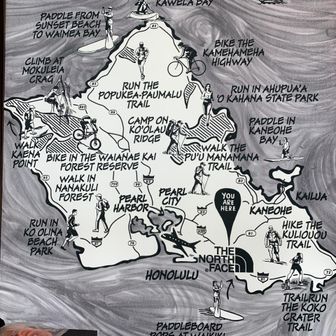 KAWELA BAY
PADDLE FROM
SUNSET BEACH
TO WAIMEA BAY
BIKE THE
KAMEHAMEHA
HIGHWAY
CLIMB AT
MOKULEIA
CRAG
RUN THE
POPUKEA-PAUMALU
TRAIL
RUN IN AHUPUA'A
'O KAHANA STATE PARK
CAMP ON
KO'OLAU
RIDGE
PADDLE IN
KANEOHE
BAY
WALK
KAENA
POINT
BIKE IN THE WAIANAE KAI
FOREST RESERVE
WALK THE
PU'U MANAMANA
TRAIL
WALK IN
NANAKULI
FOREST
PEARL
HARBOR
PEARL
CITY
YOU
ARE
HERE
KAILUA
KANEOHE
HIKE THE
KULIOUOU
TRAIL
RUN IN
KO OLINA
BEACH
PARK
THE
NORTH
FACE
HONOLULU
TRAILRUN
THE KOKO
CRATER
TRAIL
PADDLEBOARD